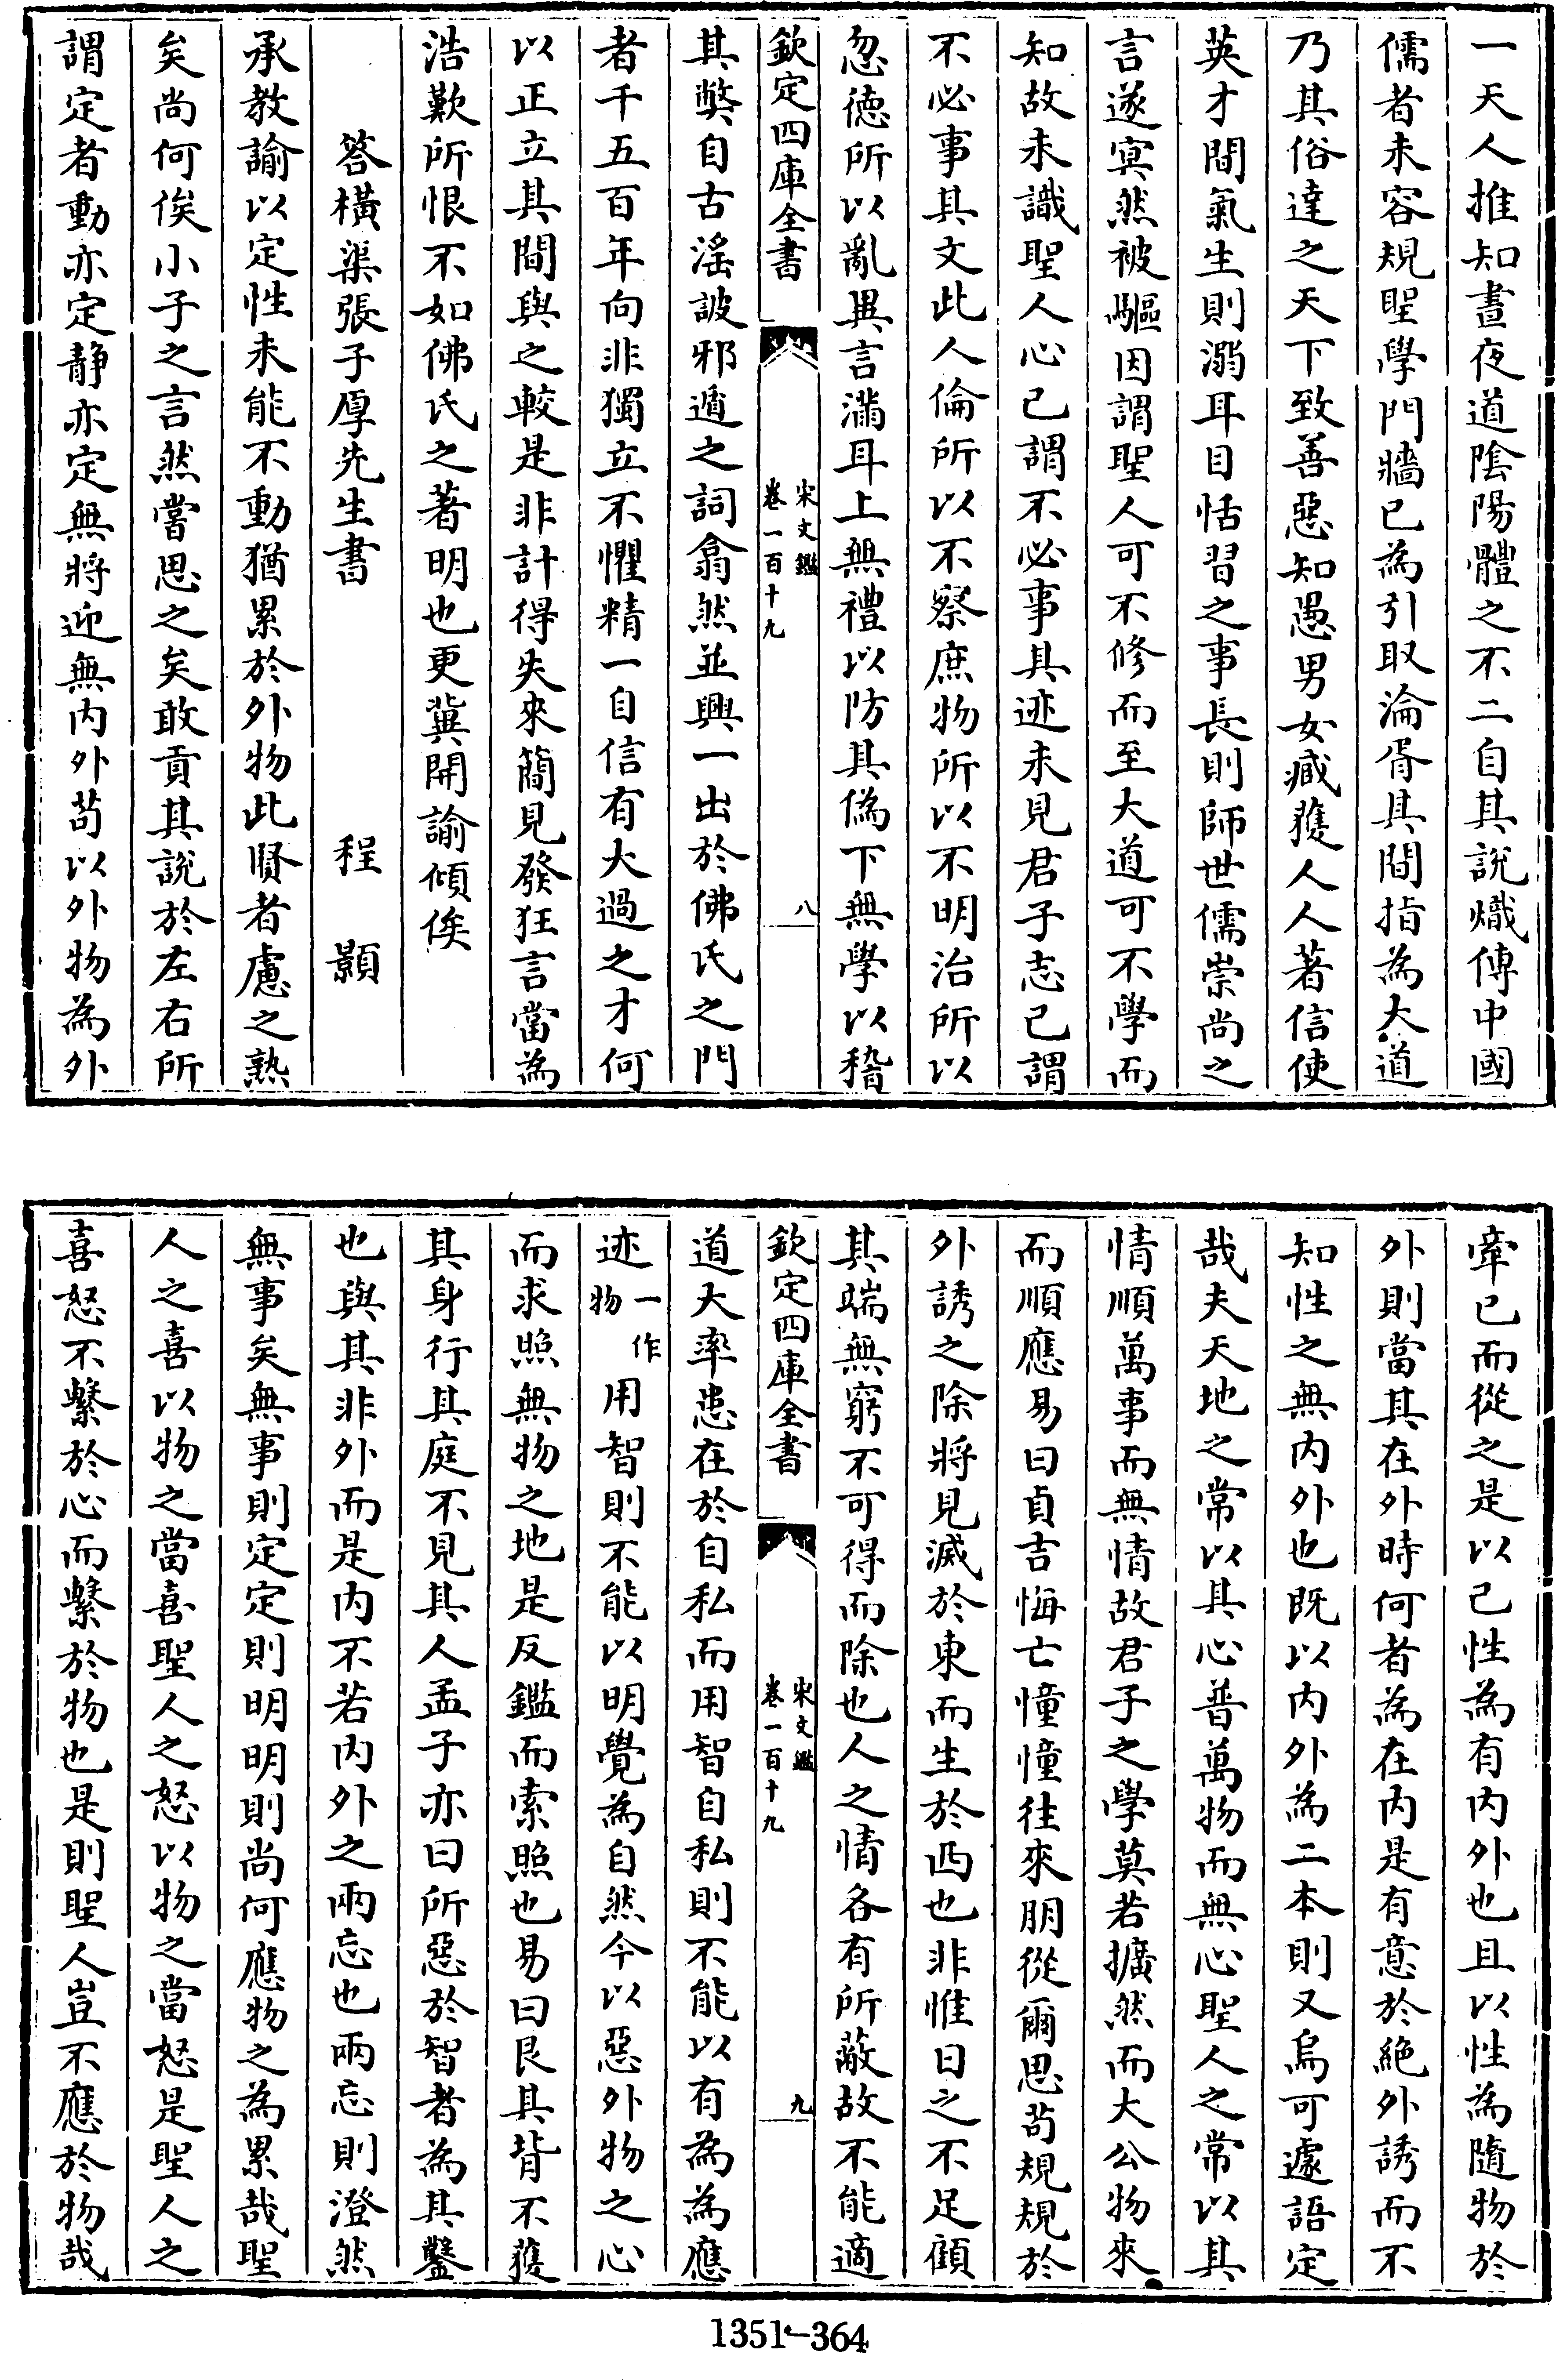 一天人推知晝夜道陰陽體之不二自其說熾傳中國
儒者未容規聖學門牆已為引取淪胥其間指為大道
乃其俗達之天下致善惡知愚男女臧獲人人著信使
英才間氣生則溺耳目恬習之事長則師世儒崇尚之
言遂冥然被驅因謂聖人可不修而至大道可不學而
知故未識聖人心已謂不必事其迹未見君子志已謂
不必事其文此人倫所以不察庶物所以不明治所以
忽徳所以亂異言滿耳上無禮以防其偽下無學以稽
欽定四庫全書
宋文鑑
卷一百十九
八
其弊自古淫詖邪遁之詞翕然並興一出於佛氏之門
者千五百年向非獨立不懼精一自信有大過之才何
以正立其間與之較是非計得失來簡見發狂言當為
浩歎所恨不如佛氏之著明也更冀開諭傾俟
答橫渠張子厚先生書 程顥
承教諭以定性未能不動猶累於外物此賢者慮之熟
矣尚何俟小子之言然嘗思之矣敢貢其說於左右所
謂定者動亦定靜亦定無將迎無内外苟以外物為外
牽已而從之是以己性為有内外也且以性為隨物於
外則當其在外時何者為在内是有意於絶外誘而不
知性之無内外也既以内外為二本則又烏可遽語定
哉夫天地之常以其心普萬物而無心聖人之常以其
情順萬事而無情故君子之學莫若擴然而大公物來
而順應易曰貞吉悔亡憧憧往來朋從爾思苟規規於
外誘之除將見滅於東而生於西也非惟日之不足顧
其端無窮不可得而除也人之情各有所蔽故不能適
欽定四庫全書
宋文鑑
卷一百十九
九
道大率患在於自私而用智自私則不能以有為為應
迹一作物用智則不能以明覺為自然今以惡外物之心
而求照無物之地是反鑑而索照也易曰艮其背不獲
其身行其庭不見其人孟子亦曰所惡於智者為其鑿
也與其非外而是内不若内外之兩忘也兩忘則澄然
無事矣無事則定定則明明則尚何應物之為累哉聖
人之喜以物之當喜聖人之怒以物之當怒是聖人之
喜怒不繫於心而繫於物也是則聖人豈不應於物哉
1351-364